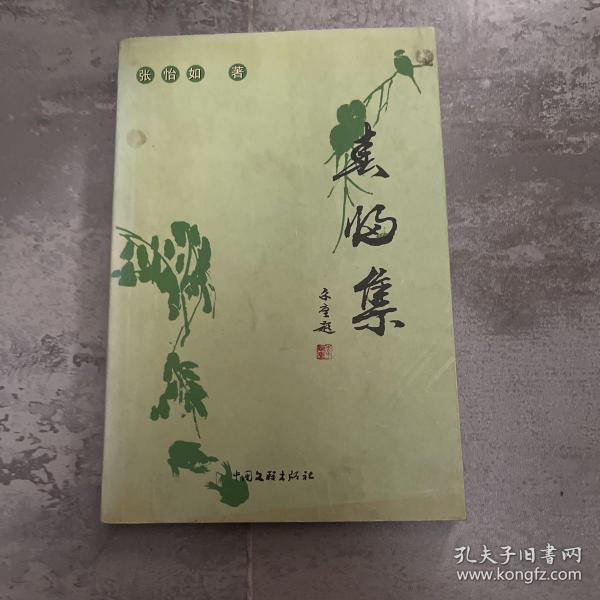 张怡如 著
春归集
中国文联出版社
孔夫子旧书网
www.kongfz.com